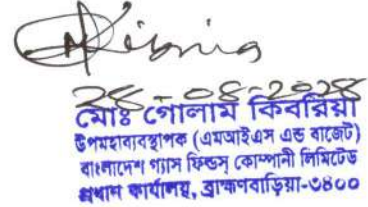 Kibria
28-08-2028
মোঃ গোলাম কিবরিয়া
উপমহাব্যবস্থাপক (এমআইএস এন্ড বাজেট)
বাংলাদেশ গ্যাস ফিল্ডস্ কোম্পানী লিমিটেড
প্রধান কার্যালয়, ব্রাহ্মণবাড়িয়া-৩৪০০